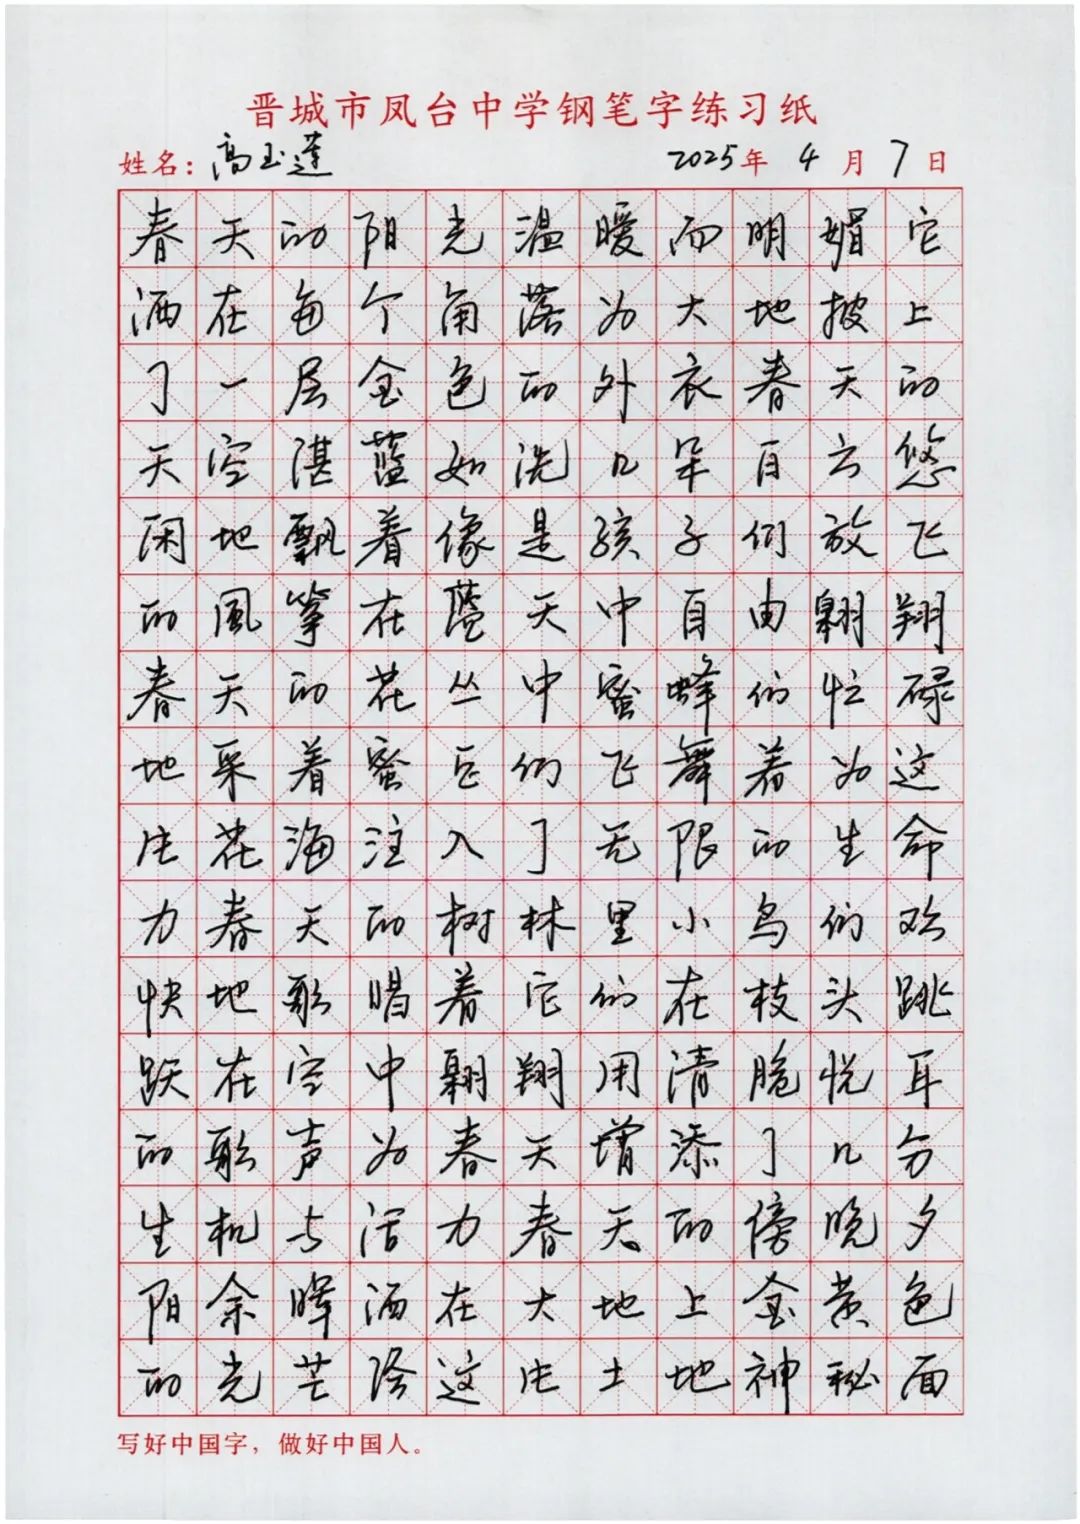 晋城市凤台中学钢笔字练习纸
姓名：高玉莲 2025年 4 月 7 日
春天的阳光温暖而明媚它
洒在每个角落为大地披上
了一层金色的外衣春天的
天空湛蓝如洗几朵白云悠
闲地飘着像是孩子们放飞
的風筝在蓝天中自由翱翔
春天的花丛中蜜蜂们忙碌
地采着蜜它们飞舞着为这
片花海注入了无限的生命
力春天的树林里小鸟们欢
快地歌唱着它们在枝头跳
跃在空中翱翔用清脆悦耳
的歌声为春天增添了几分
生机与活力春天的傍晚夕
阳余晖洒在大地上金黄色
的光芒给这片土地神秘面
写好中国字，做好中国人。